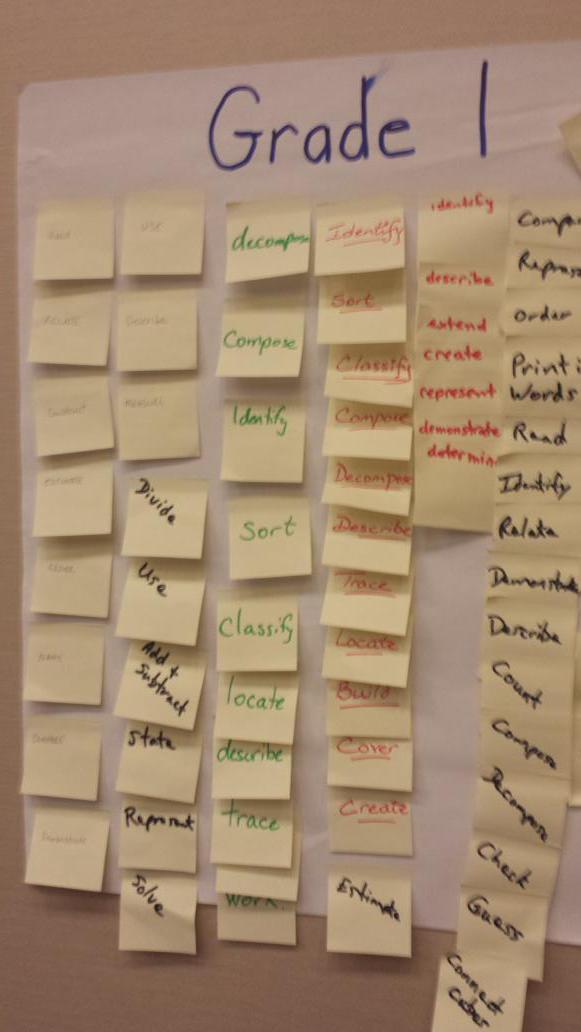 Grade 1
use
Describe
Measure
Divide
Use
Add +
Subtract
State
Represent
Solve
decompose
Compose
Identify
Sort
Classify
locate
describe
trace
work.
Identify
Sort
Classify
Compose
Decompose
Describe
Trace
Locate
Build
Cover
Create
Estimate
identify
describe
extend
create
represent
demonstrate
determin
Compo
Repres
Order
Print i
Words
Read
Identify
Relate
Demonstrate
Describe
Count
Compose
Decompose
Check
Guess
Connect